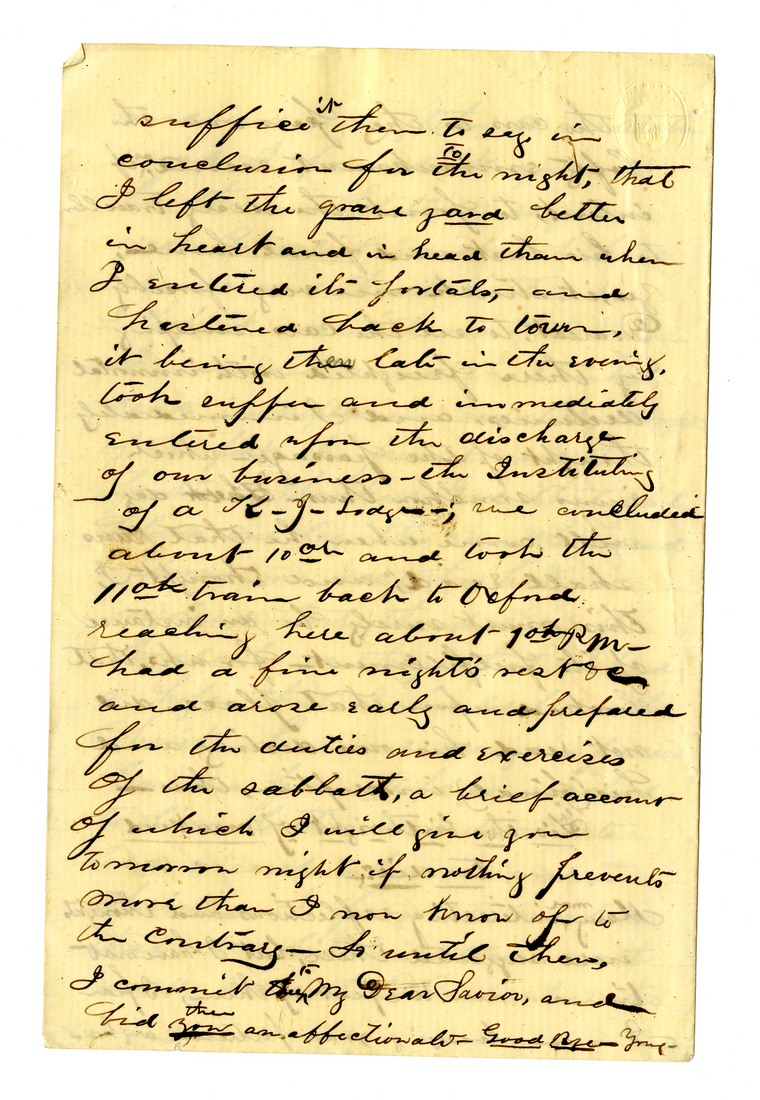 suffice it then to say in
conclusion for to the night, that
I left the grave yard better
in heart and in head than when
I entered its portals, and
hastened back to town,
it being then late in the evening,
took supper and immediately
entered upon the discharge
of our business - the Instituting
of a K - J - Lodge -; we concluded
about 10 oh and took the
11 oh train back to Oxford
reaching here about 1 oh P.M -
had a fine night's rest &c
and arose early and prepared
for the duties and exercises
of the sabbath, a brief account
of which I will give you
tomorrow night, if nothing prevents
more than I now know of to
the contrary - So until then,
I commit to My Dear Savior, and
bid thee you an affectionate - Good Bye - Your -